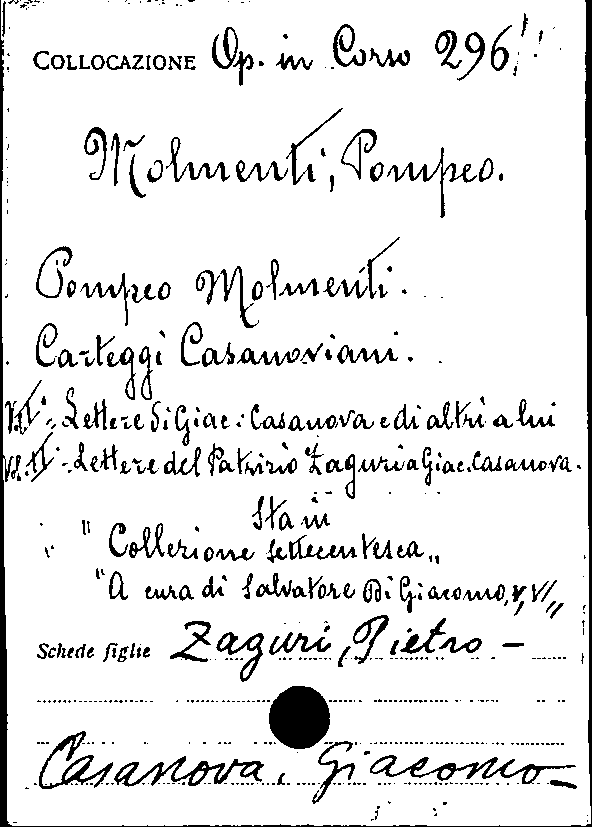 COLLOCAZIONE Op. in Corso 296
Molmenti, Pompeo.
Pompeo Molmenti.
Carteggi Casanoviani.
Vol. I: - Lettere di Giac: Casanova e di altri a lui
Vol. II - Lettere del Patrizio Zaguri a Giac. Casanova.
Sta in
"Collezione settecentesca„
"A cura di Salvatore Di Giacomo, V, VI„
Schede figlie Zaguri, Pietro -
Casanova, Giacomo -